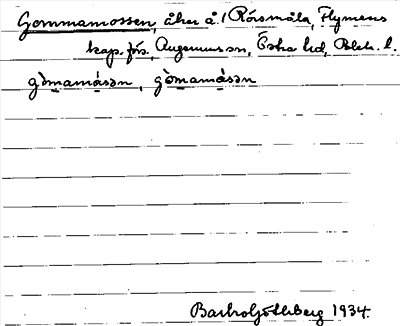 Gommamossen, åker å 1 Rörsmåla, Flymens
kap. förs., Augerums sn, Östra hd, Blek. l.
gòmamåsən, gòmamåsən
Barbro Göthberg 1934.